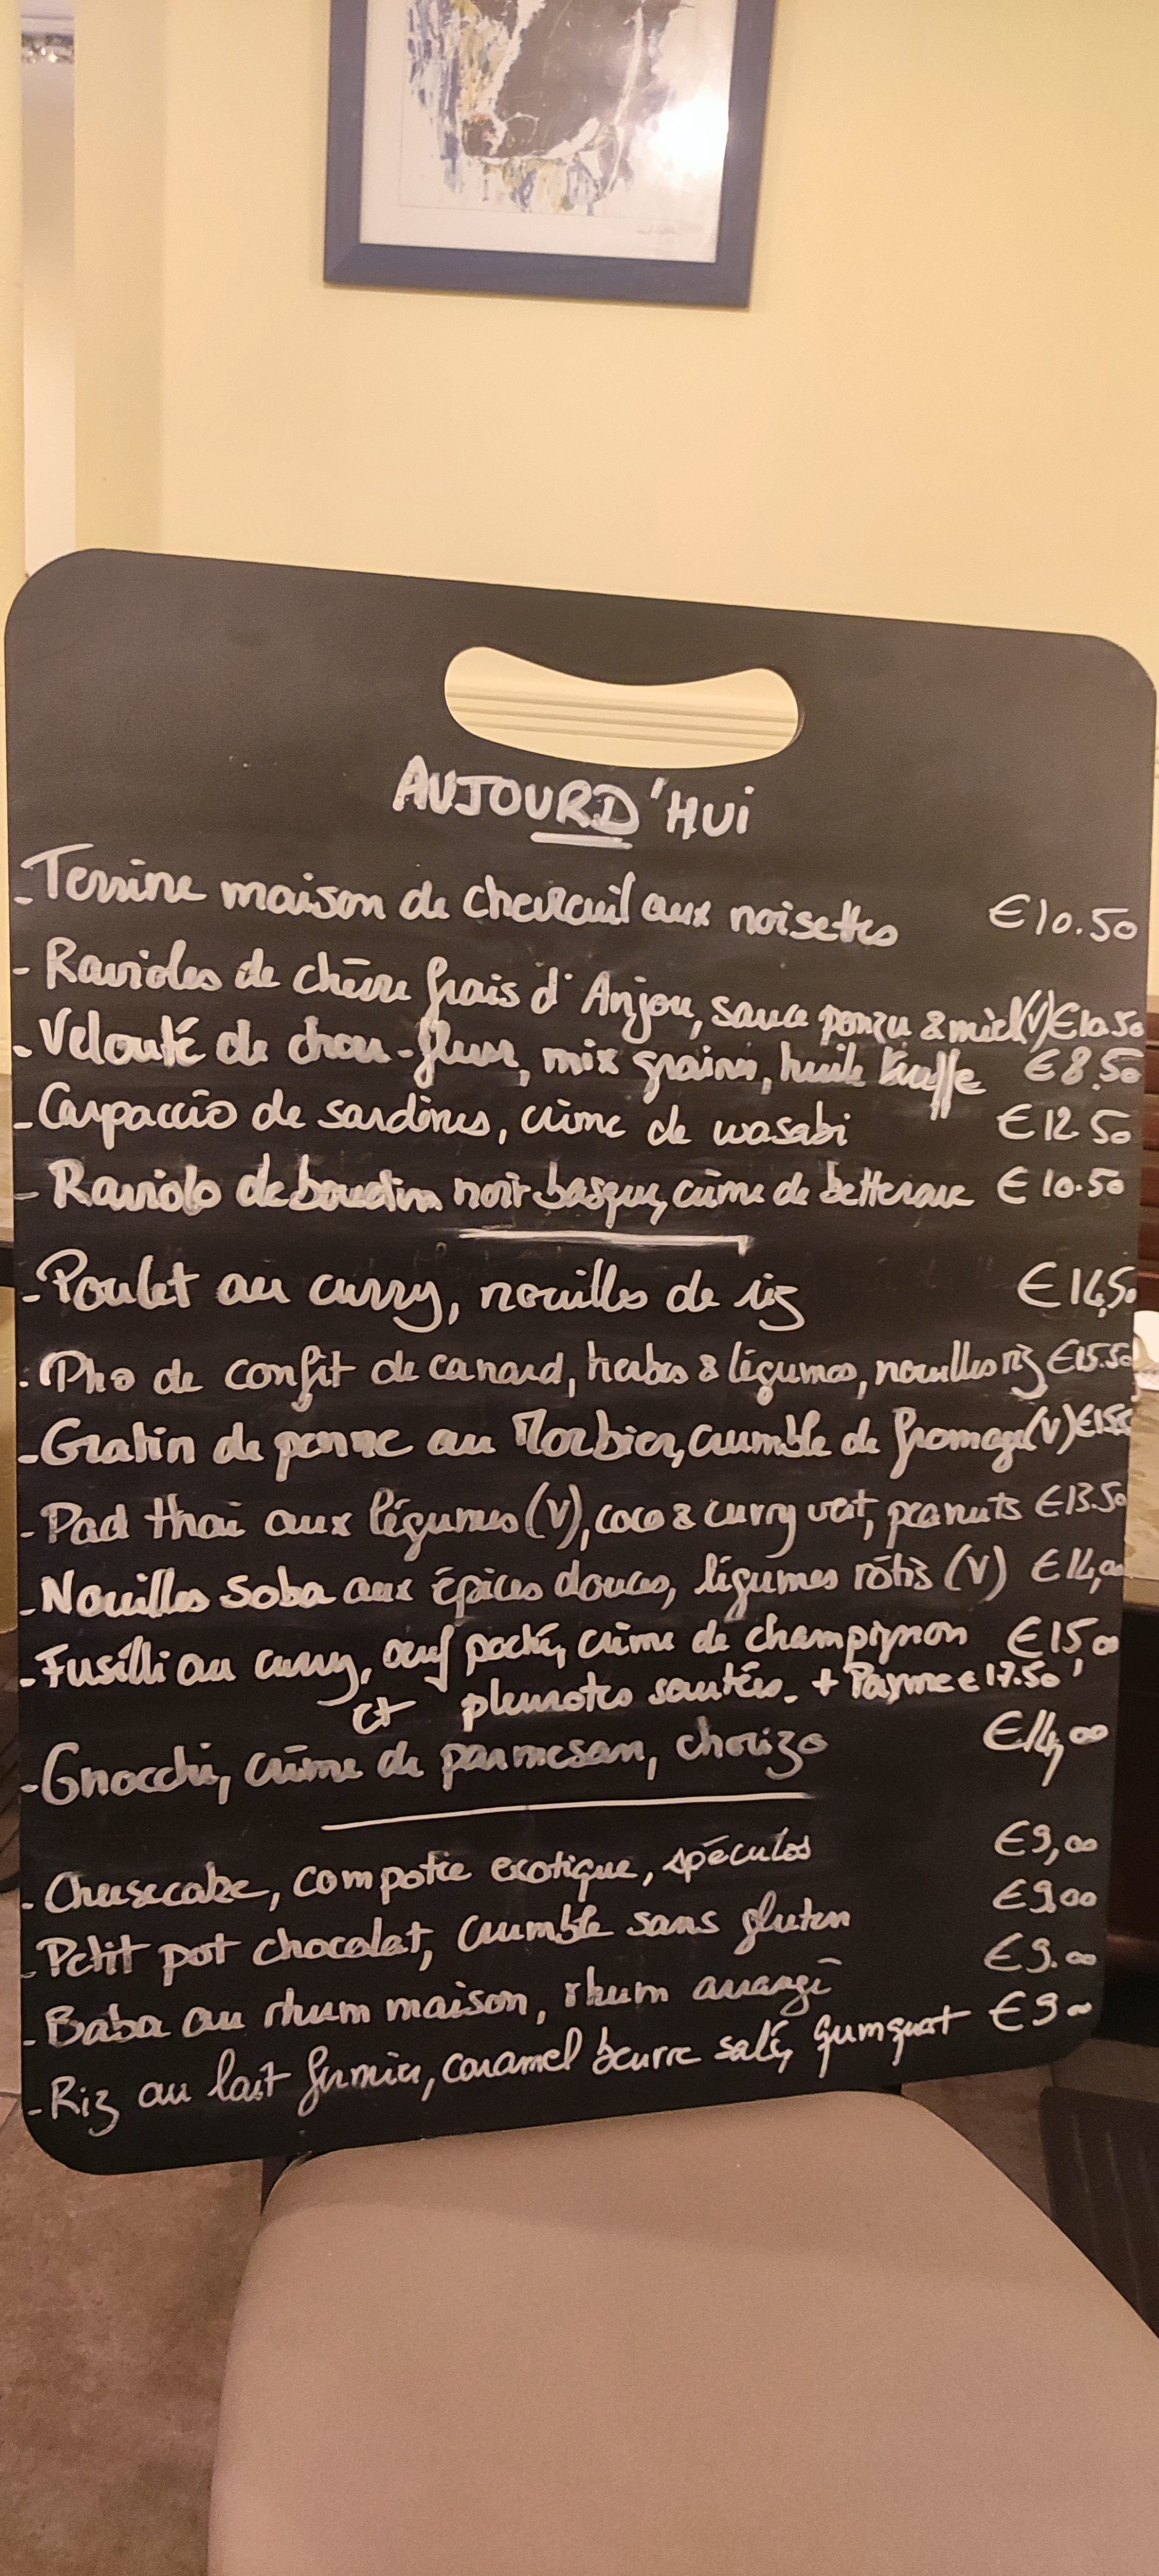 AUJOURD'HUI
- Terrine maison de chevreuil aux noisettes €10.50
- Ravioles de chèvre frais d'Anjou, sauce ponzu & miel (V) €10.50
- Velouté de chou-fleur, mix graines, huile truffe €8.50
- Carpaccio de sardines, crème de wasabi €12.50
- Raviolo de boudin noir basque, crème de betterave €10.50
- Poulet au curry, nouilles de riz €14,50
- Pho de confit de canard, herbes & légumes, nouilles riz €15.50
- Gratin de penne au Morbier, crumble de fromage (V)
- Pad thaï aux légumes (V), coco & curry vert, peanuts €13.50
- Nouilles Soba aux épices douces, légumes rôtis (V) €14,00
- Fusilli au curry, œuf poché, crème de champignon €15,00
et pleurotes sautées. + Parme € 17.50
- Gnocchi, crème de parmesan, chorizo €14,00
- Cheesecake, compotée exotique, spéculos €9,00
- Petit pot chocolat, crumble sans gluten €9.00
- Baba au rhum maison, rhum arrangé €9.00
- Riz au lait fermier, caramel beurre salé, gumquat €9 00